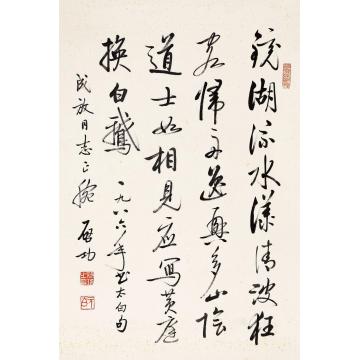 镜湖流水漾清波狂
客归舟逸兴多山陰
道士如相見应寫黄庭
換白鵝 一九八六年书太白句
成放同志正腕 启功